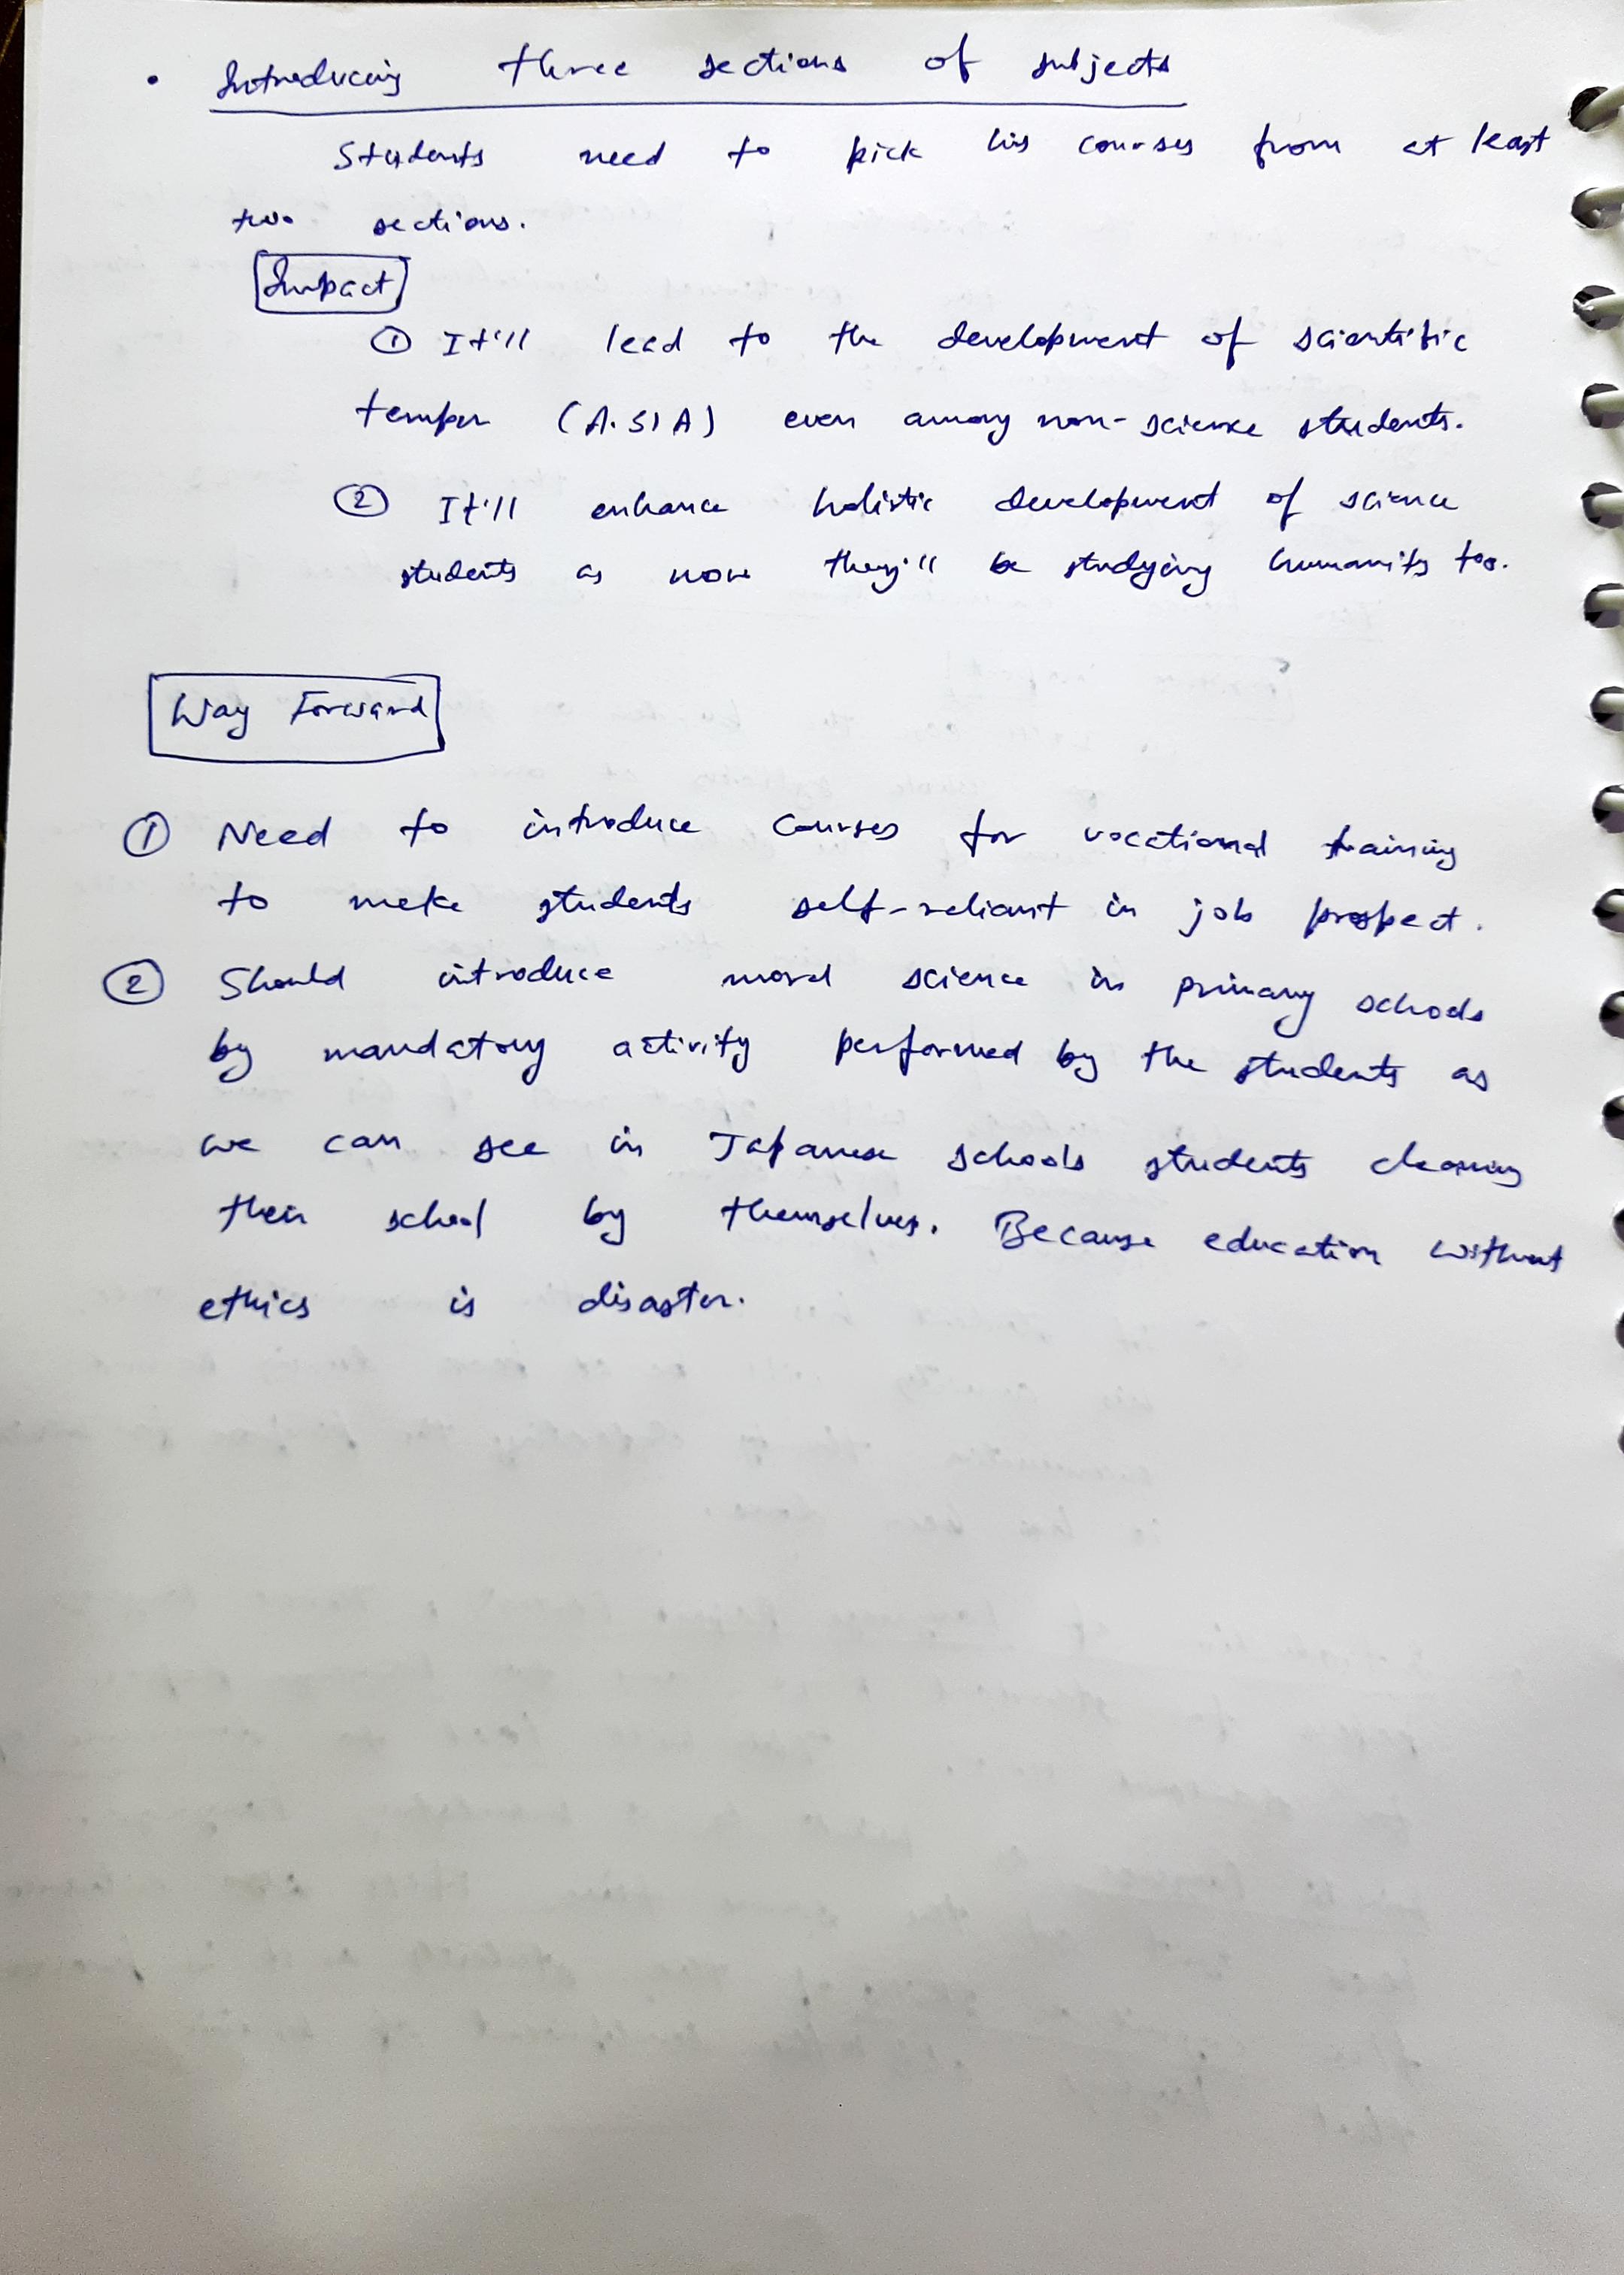 • Introducing three sections of subjects
Students need to pick his courses from at least
two sections.
Impact
① It'll lead to the development of scientific
temper (A.51A) even among non-science students.
② It'll enhance holistic development of science
students as now they'll be studying humanity too.
Way Forward
① Need to introduce courses for vocational training
to make students self-reliant in job prospect.
② Should introduce moral science in primary schools
by mandatory activity performed by the students as
we can see in Japanese schools students cleaning
their school by themselves. Because education without
ethics is disaster.